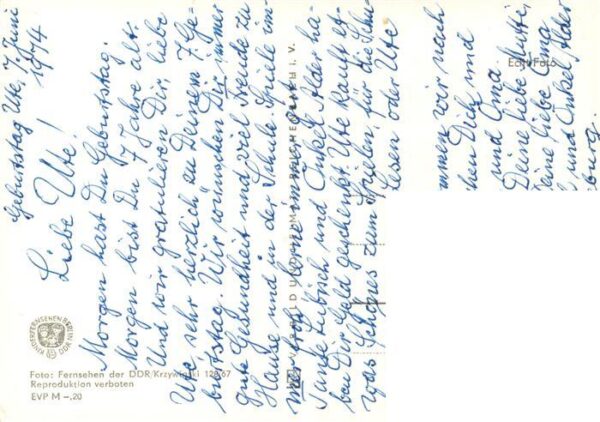 Geburtstag Ute, 7. Juni
1974
Liebe Ute!
Morgen hast Du Geburtstag.
Morgen bist Du 7 Jahre alt.
Und wir gratulieren Dir, liebe
Ute sehr herzlich zu Deinem 7. Ge-
burtstag. Wir wünschen Dir immer
gute Gesundheit und viel Freude zu
Hause und in der Schule. Spiele im-
mer froh, lerne immer gut.
Tante und Onkel Alder ha-
ben Dir Geld geschenkt. Ute kauft et-
was Schönes zum Spielen, für die Schu-
Lesen oder Ute
mmen wir nach
chen Dich und
und Oma.
Deine liebe Mutti,
eine liebe Oma
und Onkel Alder
burg.
Echt Foto
VEB BILD UND HEIMAT REICHENBACH I. V.
KINDERFERNSEHEN BERLIN DDR
Foto: Fernsehen der DDR/Krzywinski 128/67
Reproduktion verboten
EVP M –,20